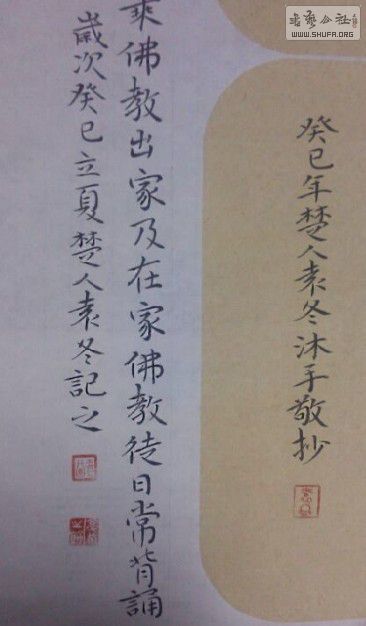 癸巳年楚人袁冬沐手敬抄
乘佛教出家及在家佛教徒日常背誦
歲次癸巳立夏楚人袁冬記之
書藝公社
WWW.SHUFA.ORG